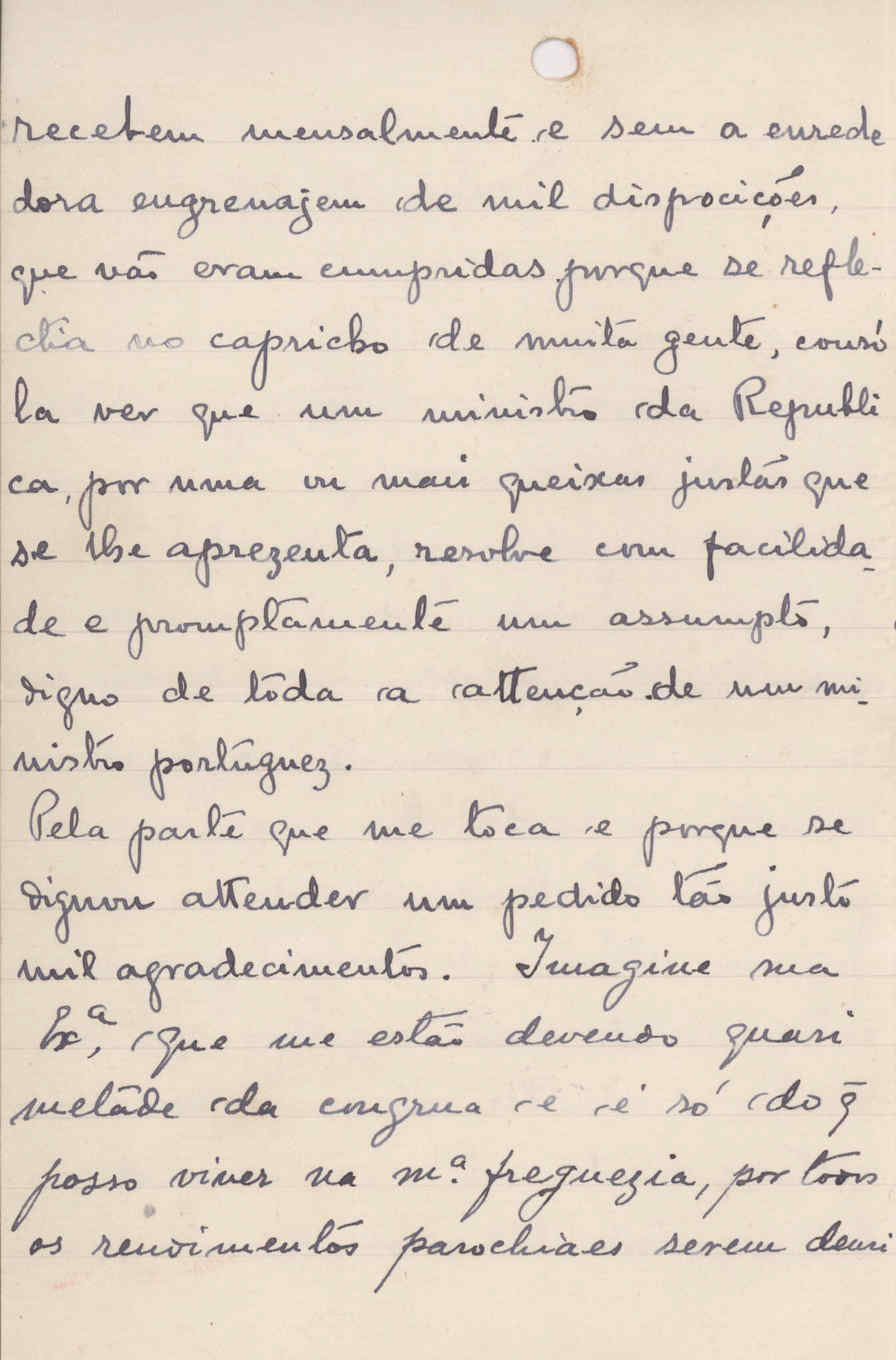 recebem mensalmente e sem a enrede
dora engrenajem de mil dispocições,
que não eram cumpridas porque se refle-
ctia no capricho de muita gente, conso
la ver que um ministro da Republi
ca, por uma ou mais queixas justas que
se lhe aprezenta, resolve com facilida-
de e promptamente um assumpto,
digno de toda a attenção de um mi-
nistro portuguez.
Pela parte que me toca e porque se
dignou attender um pedido tão justo
mil agradecimentos. Imagine sua
Exª, que me estão devendo quasi
metade da congrua e é só do q̃
posso viver na mª. freguezia, por todos
os rendimentos parochiaes serem demi